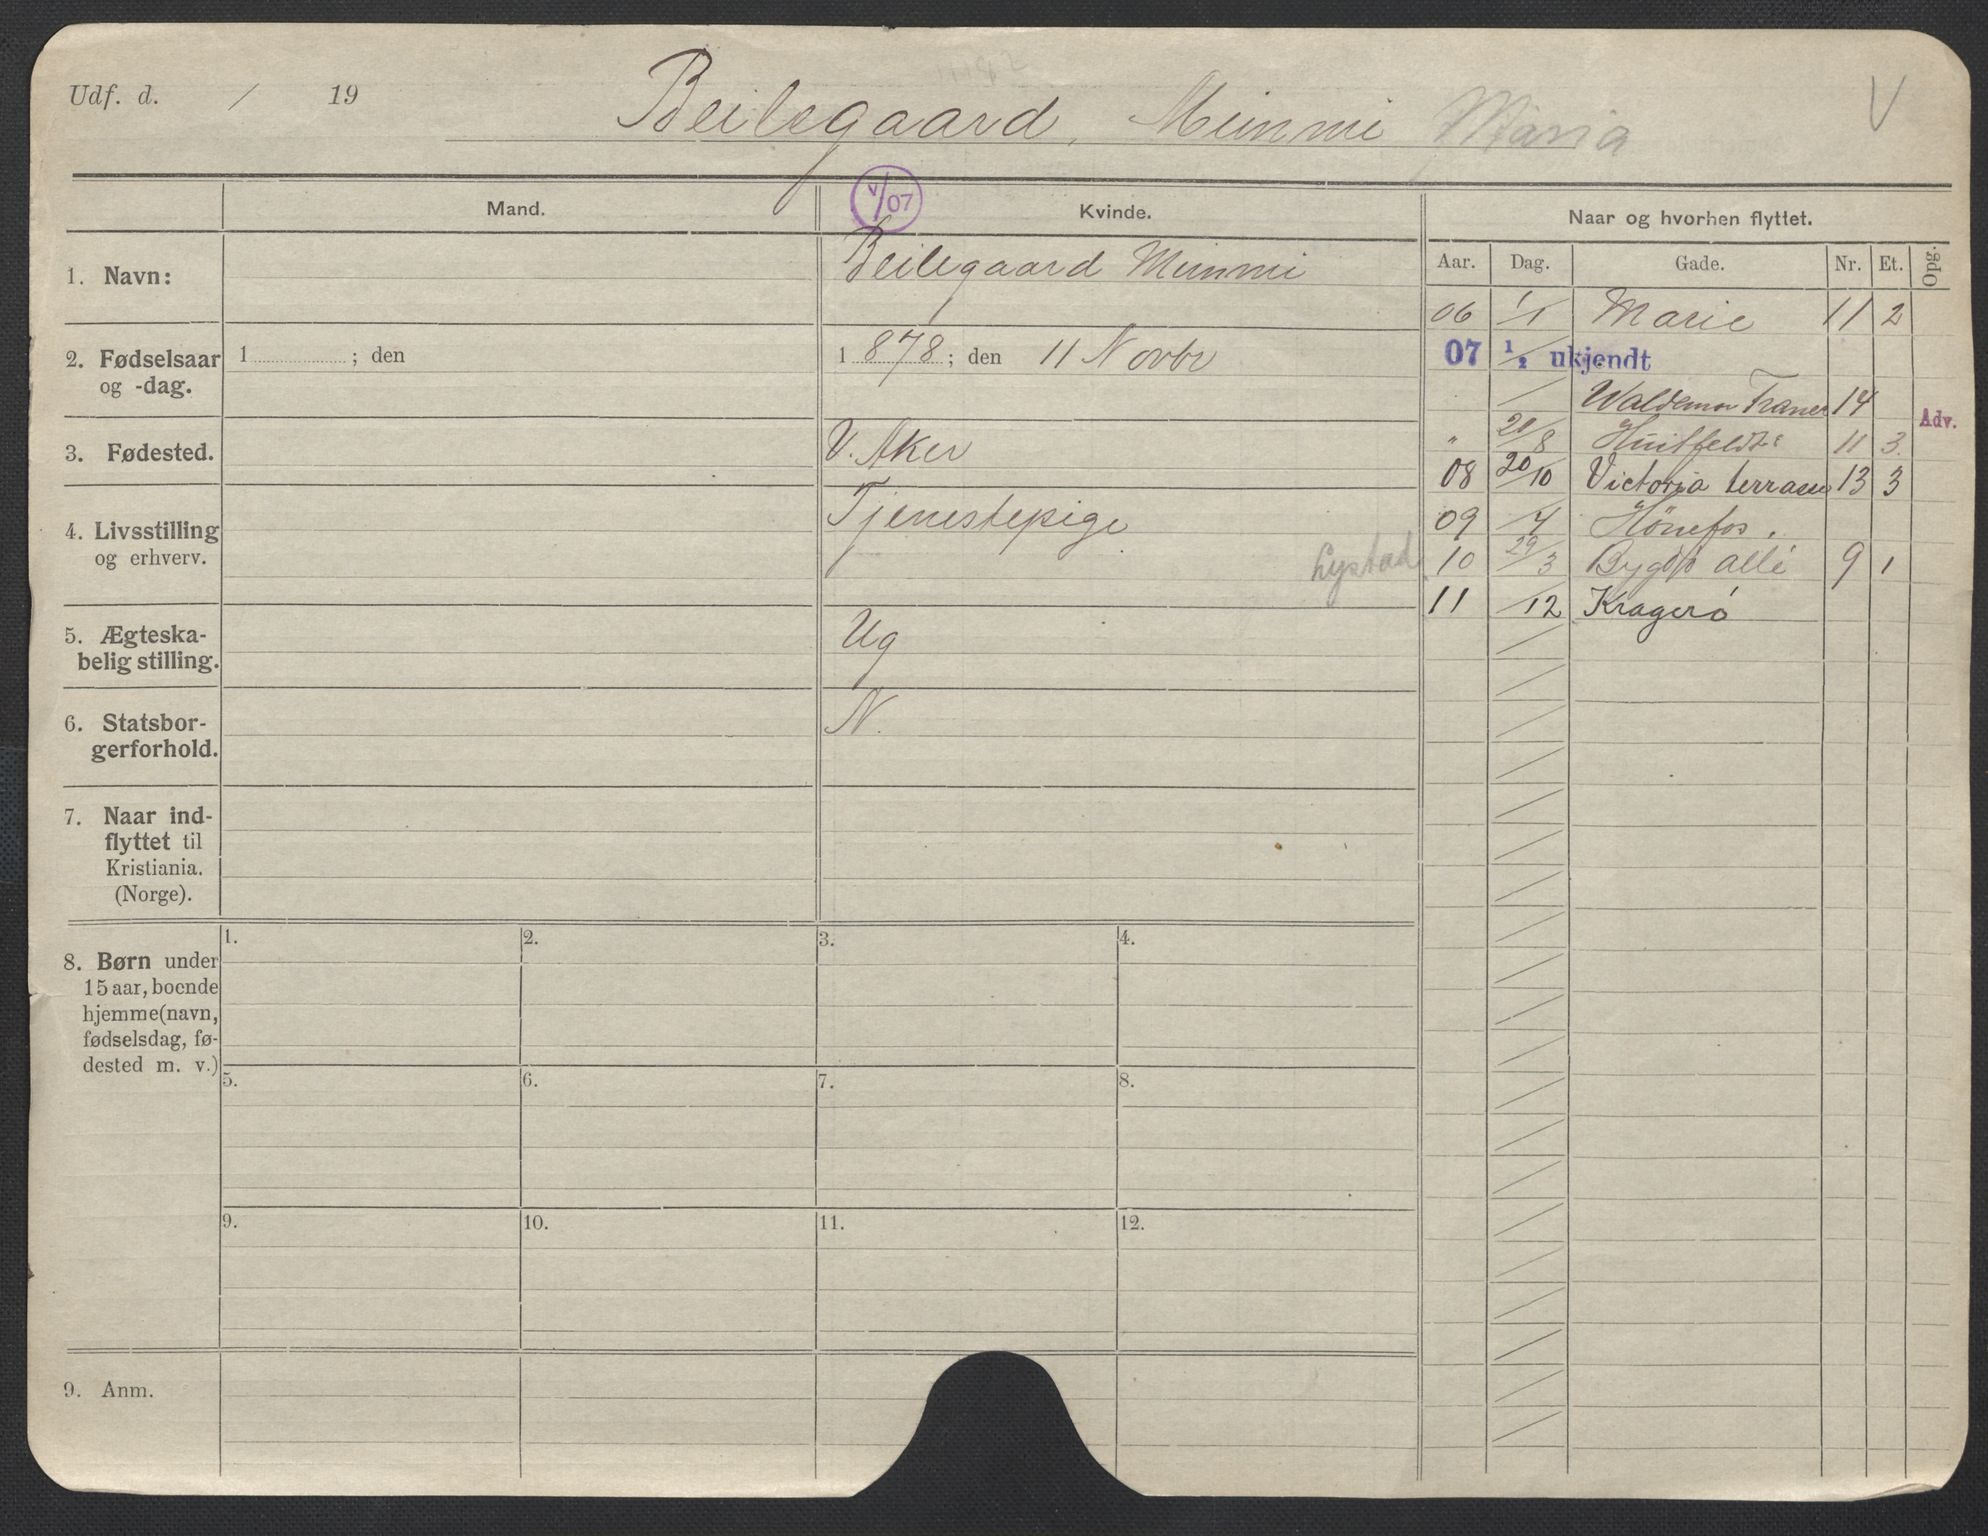 Udf. d. / 19
Beilegaard, Mimmi Maria
V
Mand.
V/07
Kvinde.
Naar og hvorhen flyttet.
Aar. Dag. Gade. Nr. Et. Opg.
1. Navn:
Beilegaard Mimmi
2. Fødselsaar
og -dag.
1 ; den
1 878 ; den 11 Novbr
3. Fødested.
V. Aker
4. Livsstilling
og erhverv.
Tjenestepige
Lystad
5. Ægteska-
belig stilling.
Ug
6. Statsbor-
gerforhold.
N.
7. Naar ind-
flyttet til
Kristiania.
(Norge).
8. Børn under
15 aar, boende
hjemme (navn,
fødselsdag, fø-
dested m. v.)
1. 2. 3. 4.
5. 6. 7. 8.
9. 10. 11. 12.
9. Anm.
06 1/1 Marie 11 2
07 1/2 ukjendt
/ Waldemar Tranes 14
Adv.
" 20/8 Huitfeldts 11 3.
08 20/10 Victoria terrasse 13 3
09 /4 Hönefos.
10 29/3 Bygdø allé 9 1
11 /12 Kragerö